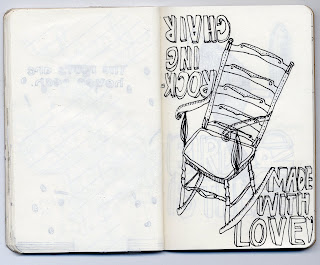 ROCK-
ING
CHAIR
MADE
WITH
LOVE